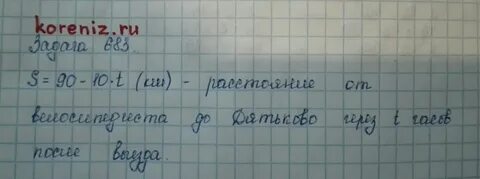 koreniz.ru
Задача 683.
S = 90 - 10·t (км) - расстояние от
велосипедиста до Дятьково через t часов
после выезда.